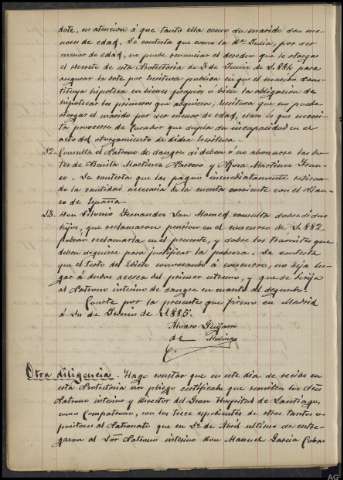 dote, en atencion á que tanto ella como su marido son me-
nores de edad. Se contesta que como la por ser
menor de edad, no puede renunciar el derecho que le otorga
el decreto de esta Protectoria de 2 de Junio de 1.884 para
asegurar la dote por escritura publica en que el marido cons-
tituya hipoteca en bienes propios o bien la obligacion de
hipotecar los primeros que adquiera, escritura que no puede
otorgar el marido por ser menor de edad, claro es que necesi-
ta proveerse de Curador que supla su incapacidad en el
acto del otorgamiento de dicha escritura.
52. Consulta el Patrono de sangre si deben ó no abonarse las do-
tes de Benita Martinez y Martinez
. Se contesta que las pague inmediatamente retiran-
do la cantidad necesaria de la cuenta corriente con el Ban-
co de España.
53. Don Fernandez San Mamed consulta sobre si dos
hijos, que reclamaron pension en el concurso de 1.882
podrán reclamarla en el presente, y sobre los tramites que
deben seguirse para justificar la pobreza. Se contesta
que el texto del Edicto convocando á concurso, no deja lu-
gar á dudas acerca del primer extremo, y que se dirija
al Patrono interino de sangre en cuanto al segundo.
Conste por la presente que firmo en Madrid
á de de 1.885.
Alvaro
de
Otra diligencia. Hago constar que en este dia se recibe en
esta Protectoria un pliego certificado que remiten los Sres
Patrono interino y Director del Gran Hospital de Santiago,
como Compatronos, con los trece espedientes de otros tantos as-
pirantes al Patronato que en de Abril ultimo se entre-
garon al Sor Patrono interino don Manuel Garcia